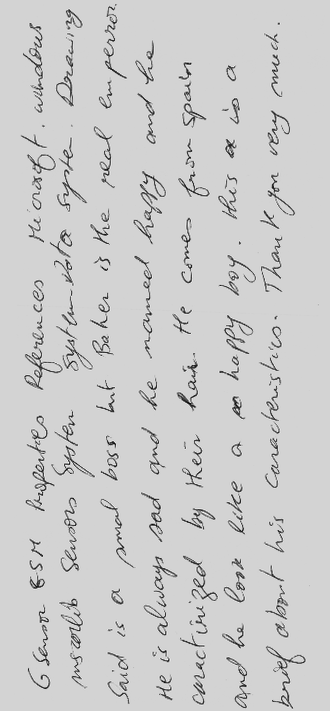 Gsensor GSM Properties References Microsoft. windows
mscorlib Sensors System System.Data System. Drawing
Said is a smal boss but Baher is the real emperor.
He is always sad and he named happy and he
caractirized by their hair. He comes from spain
and he look like a happy boy. this is a
brief about his caracteristics. Thank you very much.